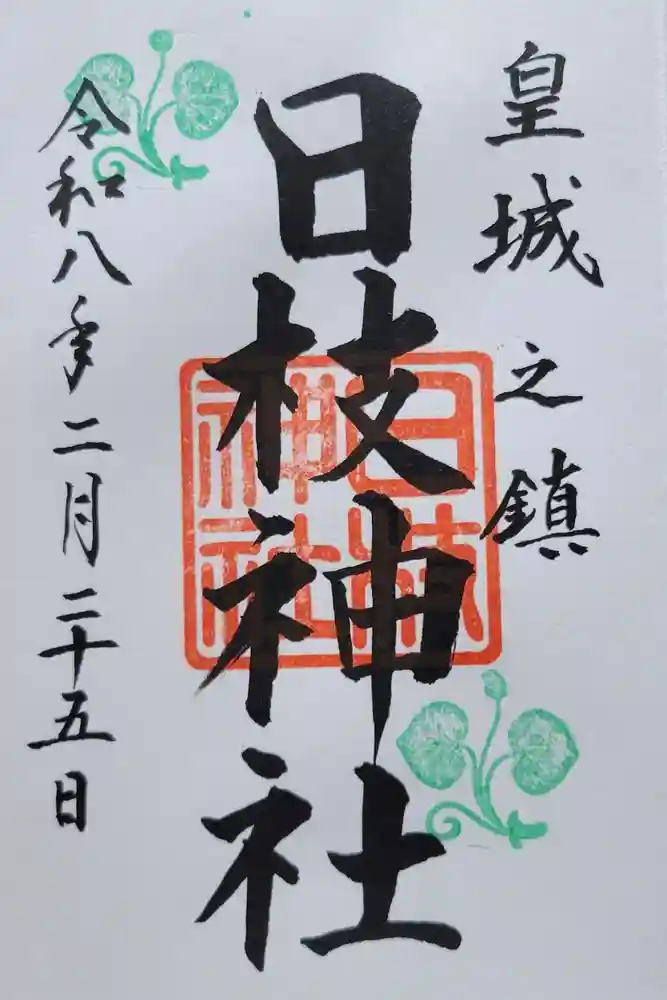 皇城之鎮
日枝神社
日枝神社
令和八年二月二十五日